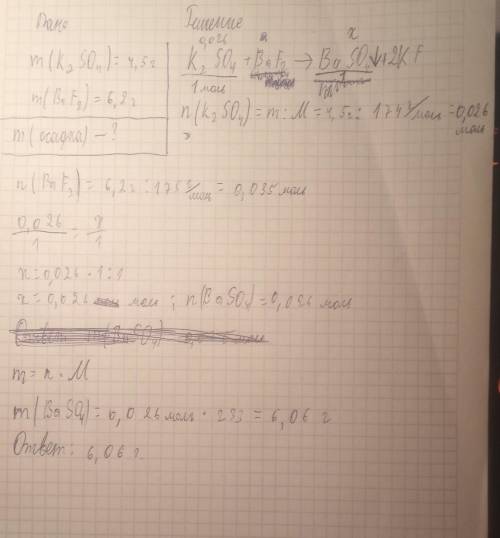 Дано
m(K₂SO₄)=4,5г
m(BaF₂)=6,2г
m(осадка) – ?
Решение
0,026 x
K₂SO₄ + BaF₂ → BaSO₄↓+2KF
1 моль 1
n(K₂SO₄) = m : M = 4,5г : 174 г/моль = 0,026 моль
n(BaF₂) = 6,2г : 175 г/моль = 0,035 моль
0,026/1 = x/1
x = 0,026 · 1 : 1
x = 0,026 моль ; n(BaSO₄) = 0,026 моль
m = n · M
m(BaSO₄) = 0,026 моль · 233 = 6,06 г
Ответ: 6,06 г.